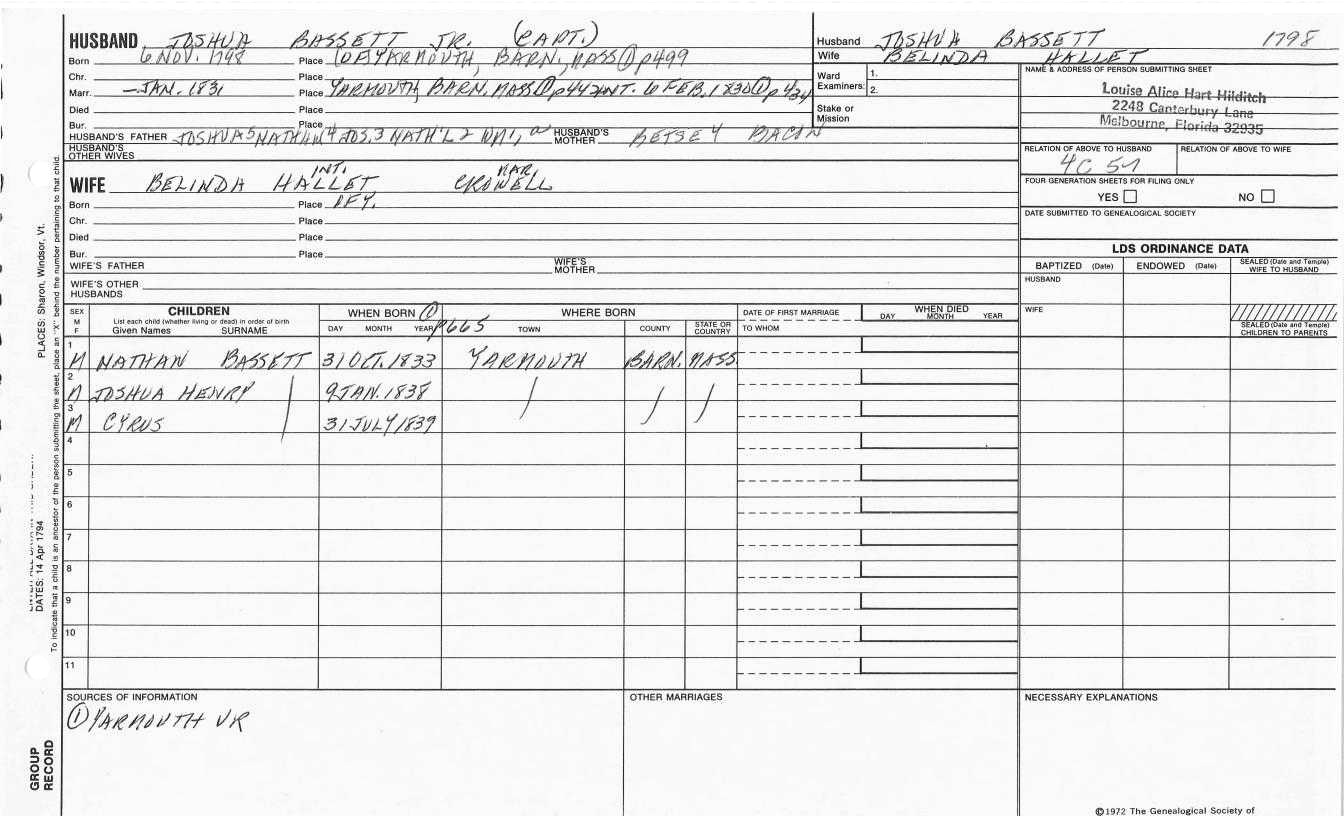 HUSBAND JOSHUA BASSETT JR. (CAPT.)
Born 6 NOV. 1798 Place (OF YARMOUTH, BARN, MASS ① p499
Chr. Place
Marr. —JAN. 1831 Place YARMOUTH, BARN. MASS ① p442 INT. 6 FEB. 1830 ① p
Died Place
Bur. Place
HUSBAND'S FATHER JOSHUA 5 NATHAN 4 JOS. 3 NATH'L 2 WM 1 HUSBAND'S MOTHER BETSEY BACON
HUSBAND'S OTHER WIVES
INT. MAR.
WIFE BELINDA HALLET CROWELL
Born Place OF Y.
Chr. Place
Died Place
Bur. Place
WIFE'S FATHER WIFE'S MOTHER
WIFE'S OTHER HUSBANDS
Husband JOSHUA BASSETT 1798
Wife BELINDA HALLET
Ward Examiners: 1.
2.
Stake or Mission
NAME & ADDRESS OF PERSON SUBMITTING SHEET
Louise Alice Hart Hilditch
2248 Canterbury Lane
Melbourne, Florida 32935
RELATION OF ABOVE TO HUSBAND RELATION OF ABOVE TO WIFE
4C 5
FOUR GENERATION SHEETS FOR FILING ONLY
YES NO
DATE SUBMITTED TO GENEALOGICAL SOCIETY
LDS ORDINANCE DATA
BAPTIZED (Date) ENDOWED (Date) SEALED (Date and Temple) WIFE TO HUSBAND
HUSBAND
WIFE
SEALED (Date and Temple) CHILDREN TO PARENTS
SEX M F CHILDREN WHEN BORN ① p665 WHERE BORN DATE OF FIRST MARRIAGE WHEN DIED
List each child (whether living or dead) in order of birth
Given Names SURNAME DAY MONTH YEAR TOWN COUNTY STATE OR COUNTRY TO WHOM DAY MONTH YEAR
1 M NATHAN BASSETT 31 OCT. 1833 YARMOUTH BARN. MASS
2 M JOSHUA HENRY / 9 JAN. 1838 / / /
3 M CYRUS 31 JULY 1839
4
5
6
7
8
9
10
11
SOURCES OF INFORMATION OTHER MARRIAGES NECESSARY EXPLANATIONS
① YARMOUTH VR
©1972 The Genealogical Society of
GROUP RECORD
DATES: 14 Apr 1794
PLACES: Sharon, Windsor, Vt.
To indicate that a child is an ancestor of the person submitting the sheet, place an "X" behind the number pertaining to that child.